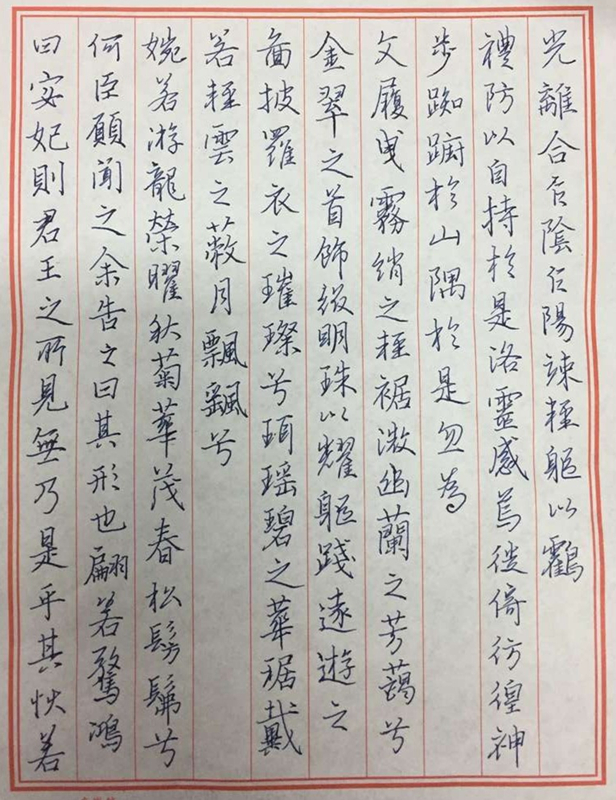 曰宓妃則君王之所見無乃是乎其狀若
何臣願聞之余告之曰其形也翩若驚鴻
婉若游龍榮曜秋菊華茂春松髣髴兮
若輕雲之蔽月飄飖兮
面披羅衣之璀璨兮珥瑤碧之華琚戴
金翠之首飾綴明珠以耀軀踐遠遊之
文履曳霧綃之輕裾微幽蘭之芳藹兮
步踟躕於山隅於是忽為
禮防以自持於是洛靈感焉徙倚彷徨神
光離合乍陰乍陽竦輕軀以鶴